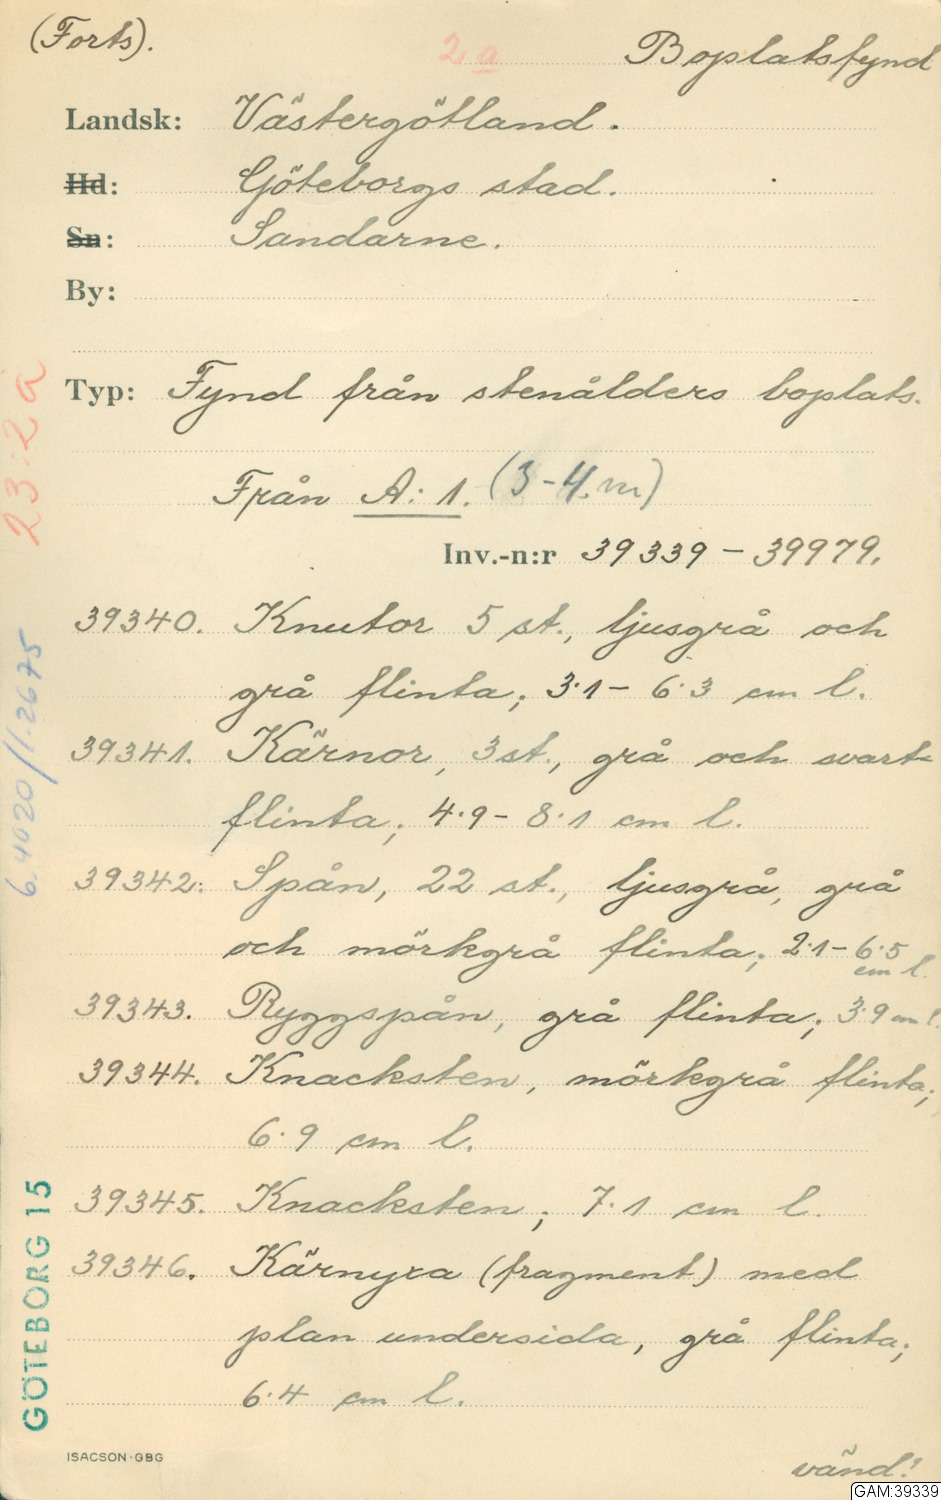 (Forts).
2a
Boplatsfynd
Landsk: Västergötland.
Hd: Göteborgs stad.
Sn: Sandarne.
By:
Typ: Fynd från stenålders boplats.
Från A: 1. (3-4. m)
Inv.-n:r 39339 - 39979.
39340. Knutor 5 st., ljusgrå och
grå flinta; 3·1 - 6·3 cm l.
39341. Kärnor, 3 st., grå och svart
flinta; 4·9 - 8·1 cm l.
39342. Spån, 22 st., ljusgrå, grå
och mörkgrå flinta; 2·1 - 6·5
cm l.
39343. Ryggspån, grå flinta; 3·9 cm l.
39344. Knacksten, mörkgrå flinta;
6·9 cm l.
39345. Knacksten; 7·1 cm l.
39346. Kärnyxa (fragment) med
plan undersida, grå flinta;
6·4 cm l.
vänd!
ISACSON·GBG
23:2a
6.4020/1.2675
GÖTEBORG 15
GAM:39339